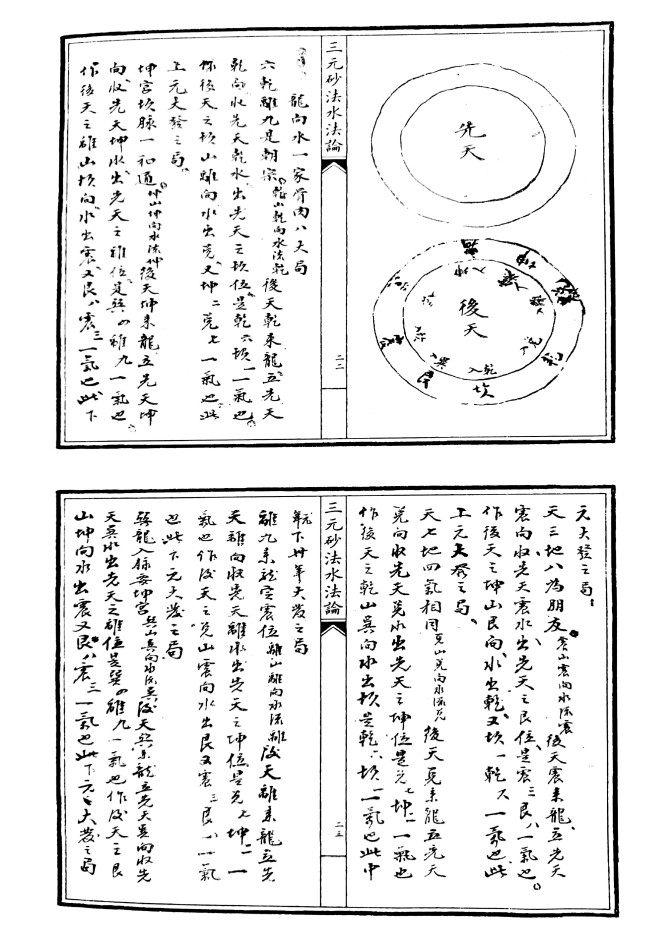 先天
後天
三元砂法水法論
二二
龍向水一家骨肉八大局
六乾離九是朝宗乾山乾向水流乾後天乾來龍立先天
乾向收先天乾水出先天之坎位是乾六坎一一氣也
作後天之坎山離向水出兌又坤二兌七一氣也此
上元大發之局
坤宮坎脉一和通坤山坤向水流坤後天坤來龍立先天坤
向收先天坤水出先天之離位是巽四離九一氣也
作後天之離山坎向水出震又艮八震三一氣也此下
元大發之局
天三地八為朋友震山震向水流震後天震來龍立先天
震向收先天震水出先天之艮位是震三艮八一氣也
作後天之坤山艮向水出乾又坎一乾六一氣也此
上元大發之局
天七地四氣相同兌山兌向水流兌後天兌來龍立先天
兌向收先天兌水出先天之坤位是兌七坤二一氣也
作後天之乾山巽向水出坎是乾六坎一一氣也此中
三元砂法水法論
二三
元下廿年大發之局
離九來龍定震位離山離向水流離後天離來龍立先
天離向收先天離水出先天之坤位是兌七坤二一
氣也作後天之兌山震向水出艮又震三艮八一氣
也此下元大發之局
天巽水出先天之離位是巽四離九一氣也作後天之艮
山坤向水出震又艮八震三一氣也此下元大發之局